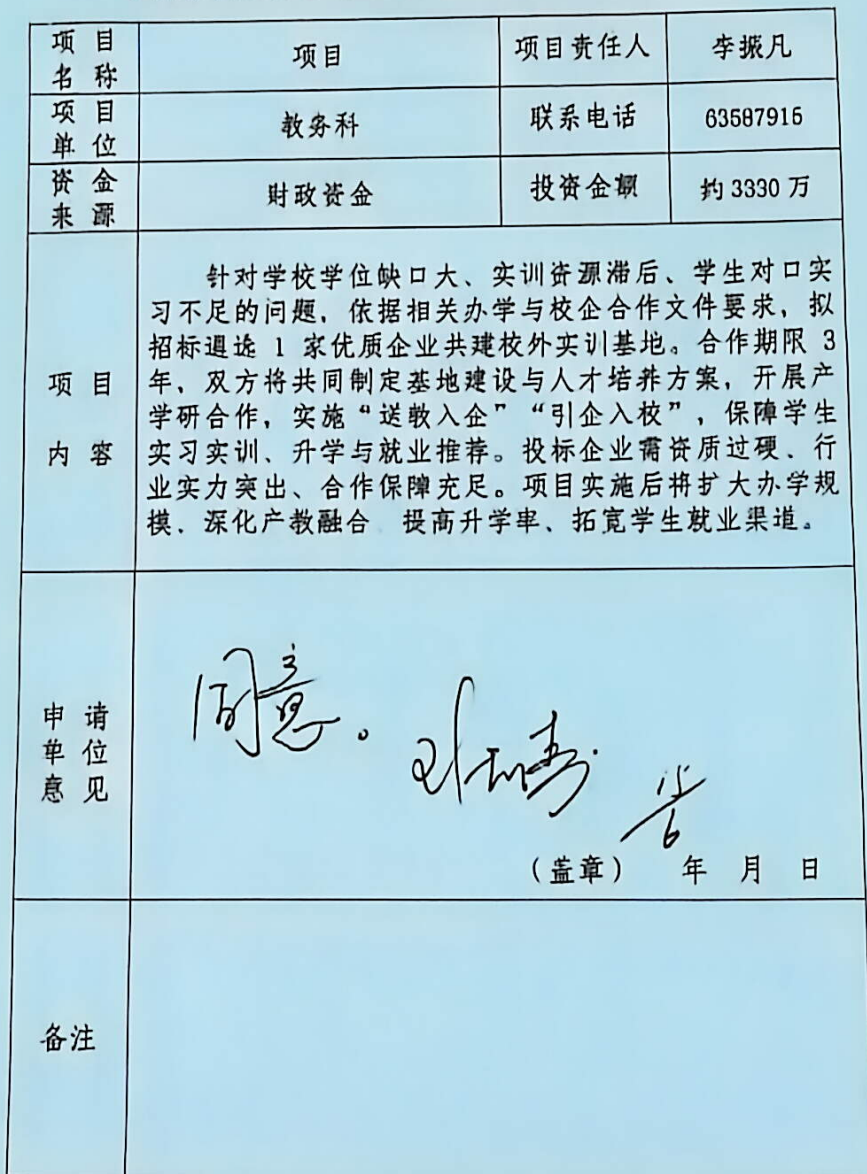 项目名称 项目 项目责任人 李振凡
项目单位 教务科 联系电话 63587915
资金来源 财政资金 投资金额 约 3330 万
项目内容
针对学校学位缺口大、实训资源滞后、学生对口实
习不足的问题，依据相关办学与校企合作文件要求，拟
招标遴选 1 家优质企业共建校外实训基地。合作期限 3
年，双方将共同制定基地建设与人才培养方案，开展产
学研合作，实施“送教入企”“引企入校”，保障学生
实习实训、升学与就业推荐。投标企业需资质过硬、行
业实力突出、合作保障充足。项目实施后将扩大办学规
模、深化产教融合 提高升学率、拓宽学生就业渠道。
申请单位意见
同意。
（盖章） 年 月 日
备注